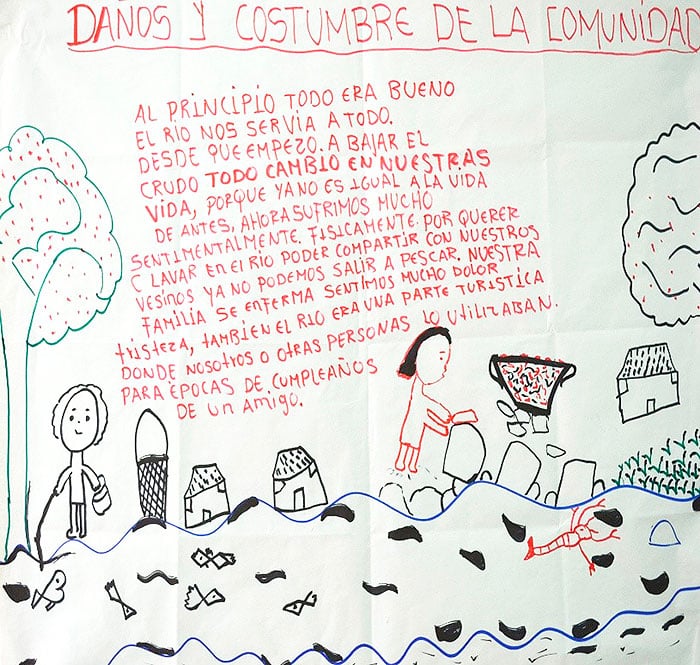 DAÑOS Y COSTUMBRE DE LA COMUNIDAD
AL PRINCIPIO TODO ERA BUENO
EL RIO NOS SERVIA A TODO.
DESDE QUE EMPEZO. A BAJAR EL
CRUDO TODO CAMBIO EN NUESTRAS
VIDA, PORQUE YA NO ES IGUAL A LA VIDA
DE ANTES, AHORA SUFRIMOS MUCHO
SENTIMENTALMENTE. FISICAMENTE. POR QUERER
C LAVAR EN EL RIO PODER COMPARTIR CON NUESTROS
VESINOS YA NO PODEMOS SALIR A PESCAR. NUESTRA
FAMILIA SE ENFERMA SENTIMOS MUCHO DOLOR
TRISTEZA, TAMBIEN EL RIO ERA UNA PARTE TURISTICA
DONDE NOSOTROS O OTRAS PERSONAS LO UTILIZABAN.
PARA ÉPOCAS DE CUMPLEAÑOS
DE UN AMIGO.